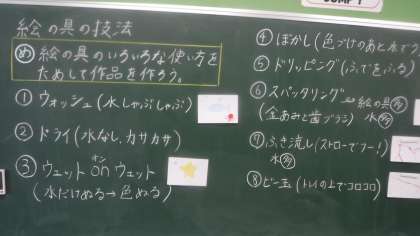 絵の具の技法
め 絵の具のいろいろな使い方を
ためして作品を作ろう。
① ウォッシュ(水しゃぶしゃぶ)
② ドライ(水なし、カサカサ)
③ ウェット on ウェット
オン
(水だけぬる→色ぬる)
④ ぼかし(色づけのあと水で
⑤ ドリッピング(ふでをふる)
⑥ スパッタリング 絵の具多
(金あみと歯ブラシ) 水多
⑦ ふき流し(ストローでフー!)
水多
⑧ ビー玉(トレイの上でコロコロ)